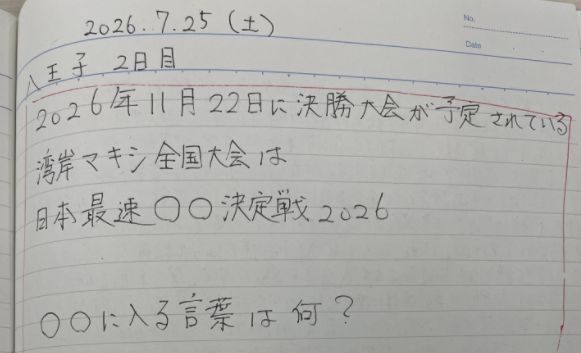 No.
Date
2026.7.25(土)
八王子 2日目
2026年11月22日に決勝大会が予定されている
湾岸マキシ全国大会は
日本最速○○決定戦2026
○○に入る言葉は何?